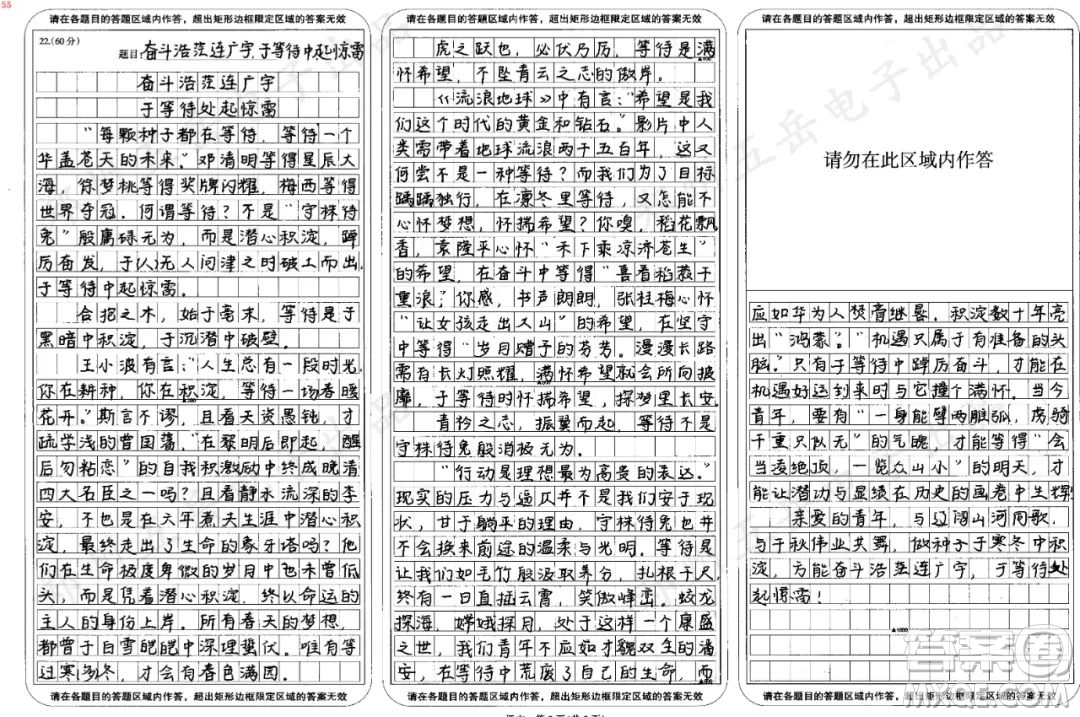 55
请在各题目的答题区域内作答，超出矩形边框限定区域的答案无效
22.(60分)
题目 奋斗浩茫连广宇,于等待中起惊雷
奋斗浩茫连广宇
于等待处起惊雷
“每颗种子都在等待，等待一个
华盖苍天的未来”邓清明等得星辰大
海，你梦桃等得奖牌闪耀，梅西等得
世界夺冠。何谓等待？不是“守株待
兔”般庸碌无为，而是潜心积淀，踔
厉奋发，于(认)无人问津之时破土而出，
于等待中起惊雷。
合抱之木，始于毫末，等待是于
黑暗中积淀，于沉潜中破壁。
王小波有言：“人生总有一段时光，
你在耕种，你在积淀，等待一场春暖
花开。”斯言不谬，且看天资愚钝，才
疏学浅的曾国藩，“在黎明后即起，醒
后勿粘恋”的自我积激励中终成晚清
四大名臣之一吗？且看静水流深的李
安，不也是在六年煮夫生涯中潜心积
淀，最终走出了生命的象牙塔吗？他
们在生命极度卑微的岁月中也未曾低
头，而是凭着潜心积淀，终以命运的
主人的身份上岸。所有春天的梦想，
都曾于白雪皑皑中深埋蛰伏。唯有等
过寒冽冬，才会有春色满园。
请在各题目的答题区域内作答，超出矩形边框限定区域的答案无效
请在各题目的答题区域内作答，超出矩形边框限定区域的答案无效
虎之跃也，必伏乃厉，等待是满
怀希望，不坠青云之志的傲岸。
《流浪地球》中有言：“希望是我
们这个时代的黄金和钻石。”影片中人
类需带着地球流浪两千五百年，这又
何尝不是一种等待？而我们为了目标
踽踽独行，在凛冬里等待，又怎能不
心怀梦想，怀揣希望？你嗅，稻花飘
香，袁隆平心怀“禾下乘凉济苍生”
的希望，在奋斗中等得“喜看稻菽千
重浪”；你感，书声朗朗，张桂梅心怀
“让女孩走出大山”的希望，在坚守
中等得“岁月赠予的芬芳。漫漫长路
需有长灯照耀，满怀希望就会所向披
靡，于等待时怀揣希望，探梦里长安。
青衿之志，振翼而起，等待不是
守株待兔般消极无为。
“行动是理想最为高贵的表达。”
现实的压力与逼仄并不是我们安于现
状，甘于躺平的理由，守株待兔也并
不会换来前途的温柔与光明。等待是
让我们如毛竹般汲取养分，扎根千尺，
终有一日直插云霄，笑傲峰峦。蛟龙
探海，嫦娥探月，处于这样一个康盛
之世，我们青年不应如才貌双全的潘
安，在等待中荒废了自己的生命，而
请在各题目的答题区域内作答，超出矩形边框限定区域的答案无效
请在各题目的答题区域内作答，超出矩形边框限定区域的答案无效
请勿在此区域内作答
应如华为人焚膏继晷，积淀数十年亮
出“鸿蒙。”“机遇只属于有准备的头
脑。”只有于等待中踔厉奋斗，才能在
机遇好运到来时与它撞个满怀。当今
青年，要有“一身能擘两雕弧，虏骑
千重只似无”的气魄，才能等得“会
当凌绝顶，一览众山小”的明天，才
能让潜功与显绩在历史的画卷中生辉。
亲爱的青年，与辽阔山河同歌，
与千秋伟业共舞，做种子于寒冬中积
淀，方能奋斗浩茫连广宇，于等待处
起惊雷！
▲1000
请在各题目的答题区域内作答，超出矩形边框限定区域的答案无效
答案圈